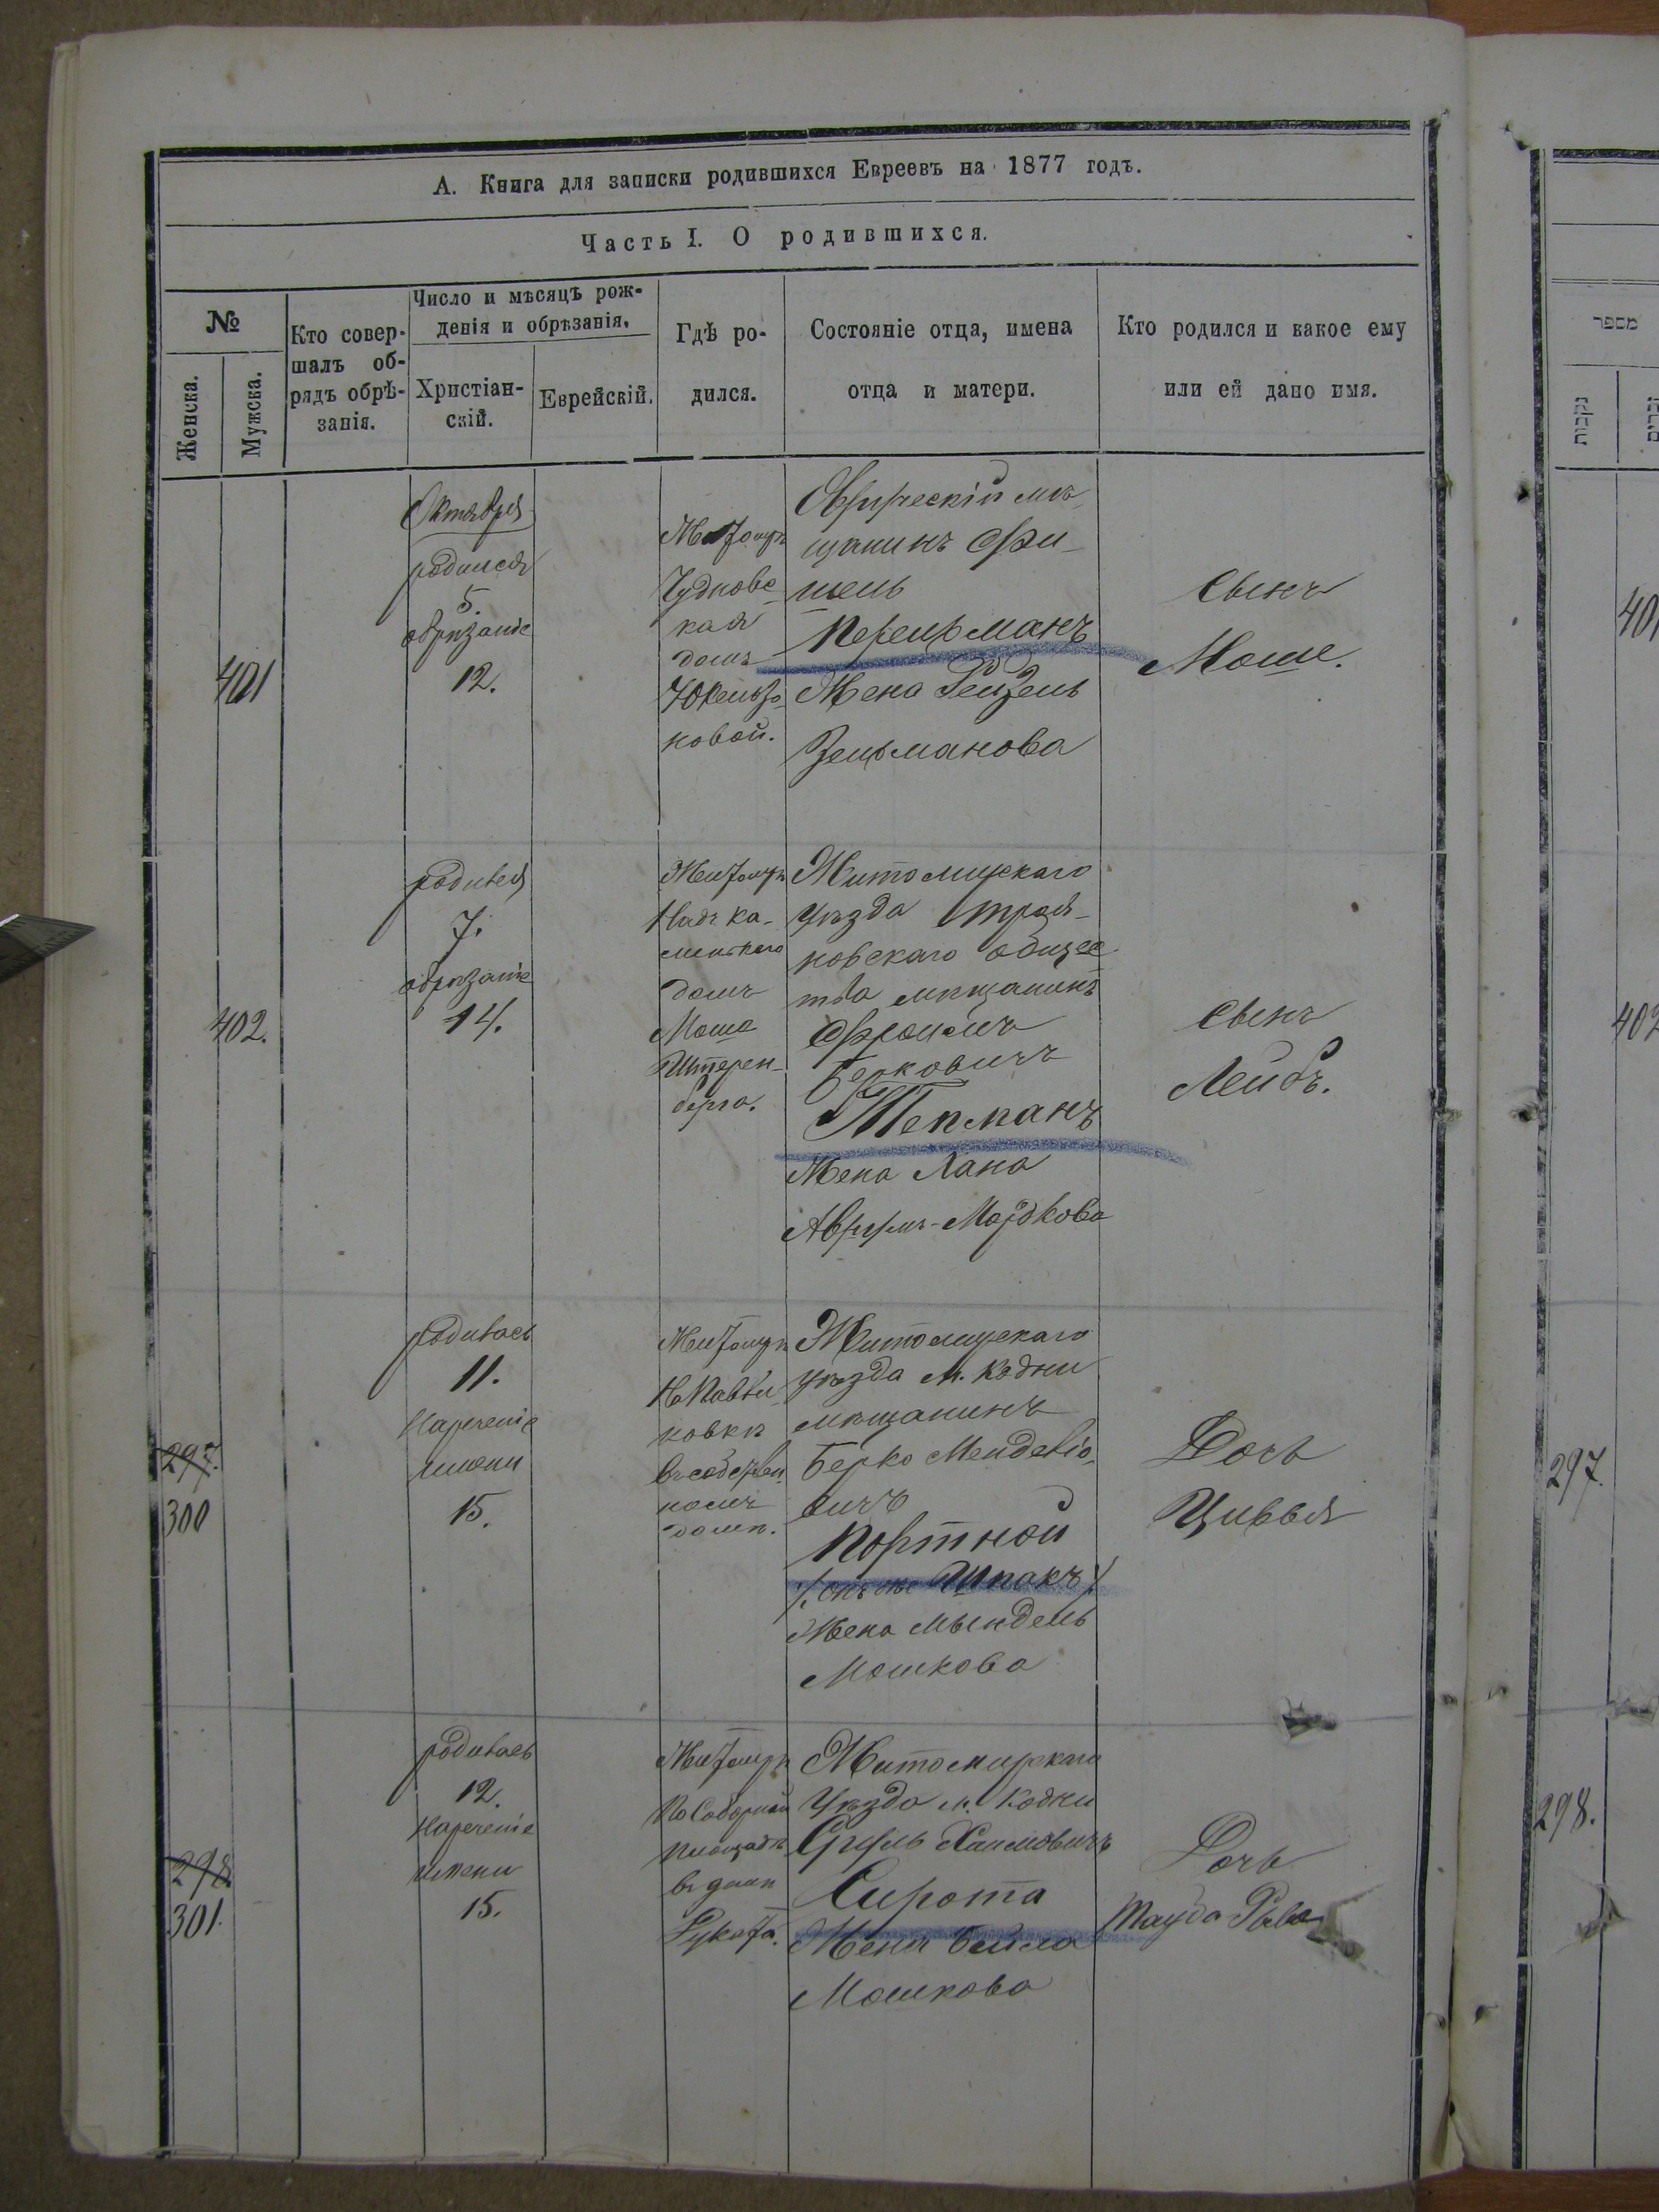 А. Книга для записки родившихся Евреевъ на 1877 годъ.
Часть I. О родившихся.
№
Женска.
Мужска.
Кто совер-
шалъ об-
рядъ обрѣ-
занія.
Число и мѣсяцъ рож-
денія и обрѣзанія.
Христіан-
скій.
Еврейскій.
Гдѣ ро-
дился.
Состояніе отца, имена
отца и матери.
Кто родился и какое ему
или ей дано имя.
401
Октября
родился
5.
обрѣзаніе
12.
Чудновс-
кая
домъ
новой.
Овручскій мѣ-
щанинъ Фи-
шель
Перельманъ
Жена Рейзель
Зельманова
Сынъ
Моше.
402.
родился
7.
обрѣзаніе
14.
Надъ ка-
домъ
Мошо
Штерен-
берга.
Житомирскаго
уѣзда Троя-
новскаго общес
тва мѣщанинъ
Фроимъ
Берковичъ
Тепманъ
Жена Хана
Аврумъ-Мордкова
Сынъ
Лейбъ.
297.
300
родилась
11.
Нареченіе
имени
15.
На Павли-
ковкѣ
въ собствен
номъ
домѣ.
Житомирскаго
уѣзда м. Кодни
мѣщанинъ
Берко Менделіо-
вичъ
Портной
/: онъ же Шпакъ :/
Жена Мындель
Мошкова
Дочь
Цивья
298
301.
родилась
12.
Нареченіе
имени
15.
По Соборной
площадѣ
въ домѣ
Житомирскаго
Уѣзда м. Кодни
Сруль Хаимовичъ
Сирота
Жена Бейла
Мошкова
Дочь
מספר
נקבות
זכרים
401
402
297.
298.